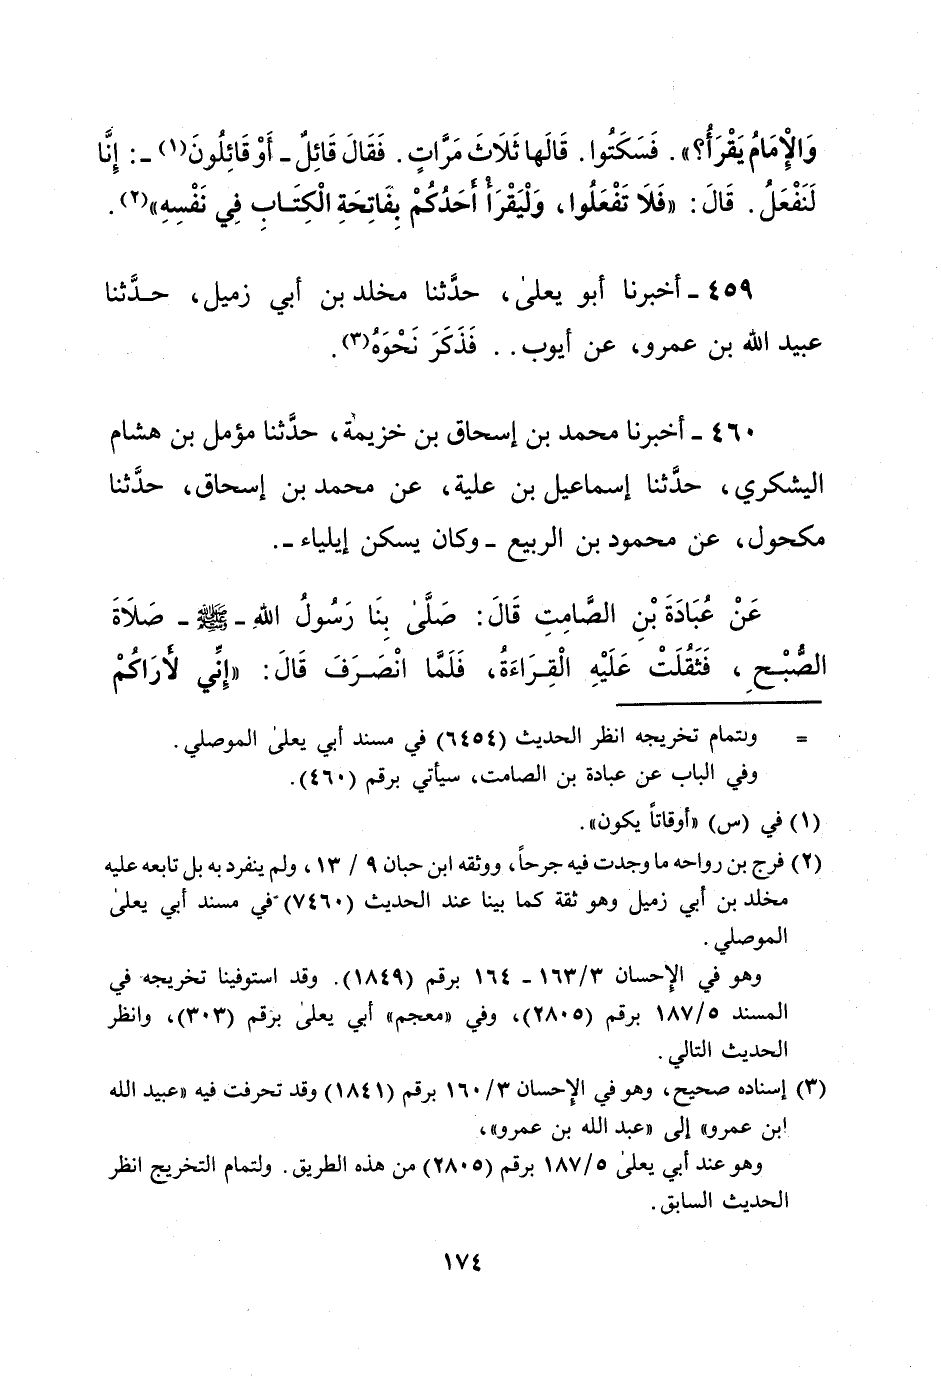 وَالْإِمَامُ يَقْرَأُ؟». فَسَكَتُوا. قَالَها ثَلَاثَ مَرَّاتٍ. فَقَالَ قَائِلٌ ـ أَوْ قَائِلُونَ(١) ـ: إِنَّا
لَنَفْعَلُ. قَالَ: «فَلَا تَفْعَلُوا، وَلْيَقْرَأْ أَحَدُكُمْ بِفَاتِحَةِ الْكِتَابِ فِي نَفْسِهِ»(٢).
٤٥٩ ـ أخبرنا أبو يعلىٰ، حدَّثنا مخلد بن أبي زميل، حدَّثنا
عبيد الله بن عمرو، عن أيوب.. فَذَكَرَ نَحْوَهُ(٣).
٤٦٠ ـ أخبرنا محمد بن إسحاق بن خزيمة، حدَّثنا مؤمل بن هشام
اليشكري، حدَّثنا إسماعيل بن علية، عن محمد بن إسحاق، حدَّثنا
مكحول، عن محمود بن الربيع ـ وكان يسكن إيلياء ـ.
عَنْ عُبَادَةَ بْنِ الصَّامِتِ قَالَ: صَلَّىٰ بِنَا رَسُولُ اللهِ ـ ﷺ ـ صَلَاةَ
الصُّبْحِ، فَثَقُلَتْ عَلَيْهِ الْقِرَاءَةُ، فَلَمَّا انْصَرَفَ قَالَ: «إِنِّي لأَرَاكُمْ
= ولتمام تخريجه انظر الحديث (٦٤٥٤) في مسند أبي يعلىٰ الموصلي.
وفي الباب عن عبادة بن الصامت، سيأتي برقم (٤٦٠).
(١) في (س) «أوقاتاً يكون».
(٢) فرج بن رواحه ما وجدت فيه جرحاً، ووثقه ابن حبان ٩ / ١٣، ولم ينفرد به بل تابعه عليه
مخلد بن أبي زميل وهو ثقة كما بينا عند الحديث (٧٤٦٠) في مسند أبي يعلىٰ
الموصلي.
وهو في الإحسان ١٦٣/٣ ـ ١٦٤ برقم (١٨٤٩). وقد استوفينا تخريجه في
المسند ١٨٧/٥ برقم (٢٨٠٥)، وفي «معجم» أبي يعلىٰ برقم (٣٠٣)، وانظر
الحديث التالي.
(٣) إسناده صحيح، وهو في الإحسان ١٦٠/٣ برقم (١٨٤١) وقد تحرفت فيه «عبيد الله
ابن عمرو» إلى «عبد الله بن عمرو»،
وهو عند أبي يعلىٰ ١٨٧/٥ برقم (٢٨٠٥) من هذه الطريق. ولتمام التخريج انظر
الحديث السابق.
١٧٤